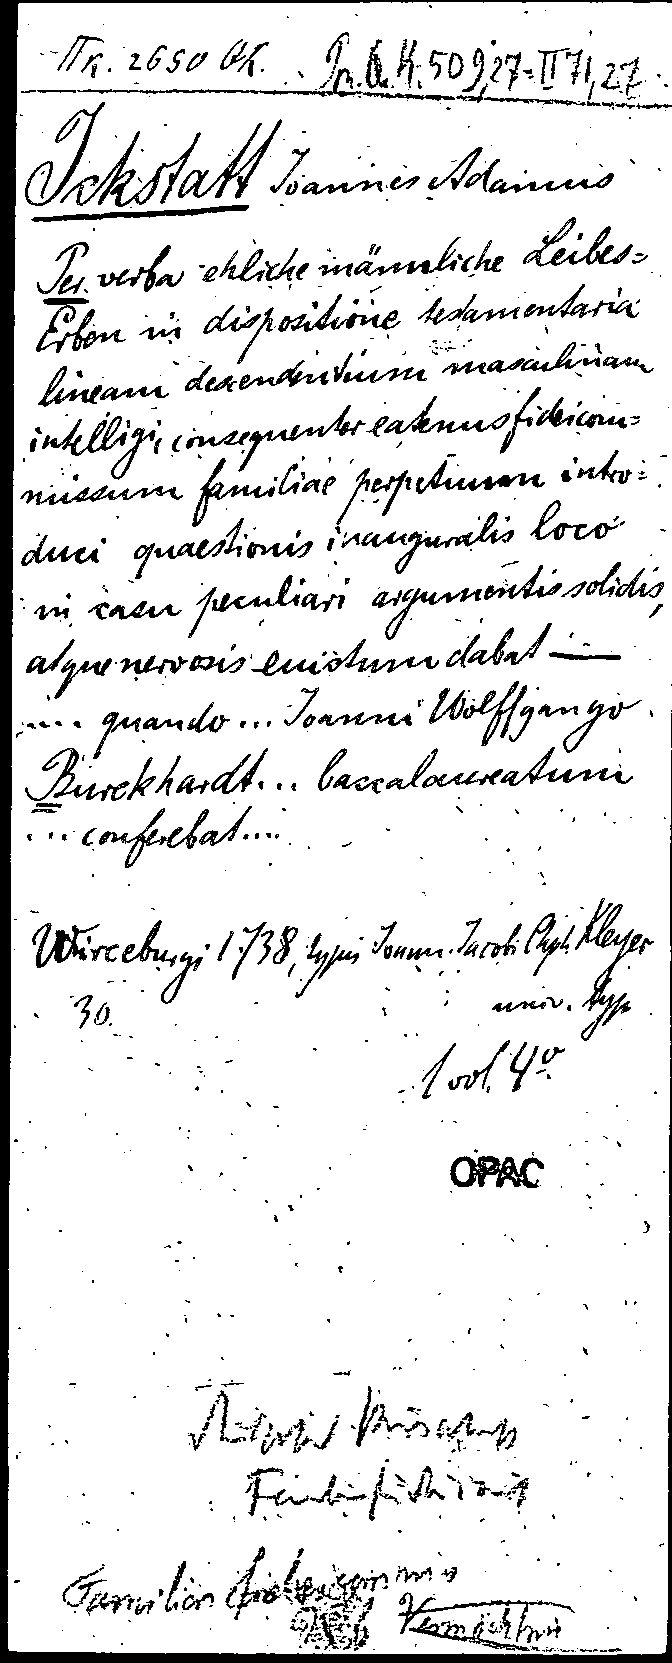 Nr. 2650 OK. Pr. Q. K. 509,27-II 71,27
Ickstatt Joannes Adamus
Per verba ehliche männliche Leibes=
Erben in dispositione testamentaria
lineam descendentium masculinam
intelligi, consequenter eatenus fideicom=
missum familiae perpetuum intro=
duci quaestionis inauguralis loco
in casu peculiari argumentis solidis,
atque nervosis enistum dabat —
... quando ... Joanni Wolffgango
Burckhardt... baccalaureatum
... conferebat ....
Wirceburgi 1738, typis Joann. Jacobi Chph. Kleyer
30. univ. typ
1 vol. 4°
OPAC
Familien
Vermächtnis